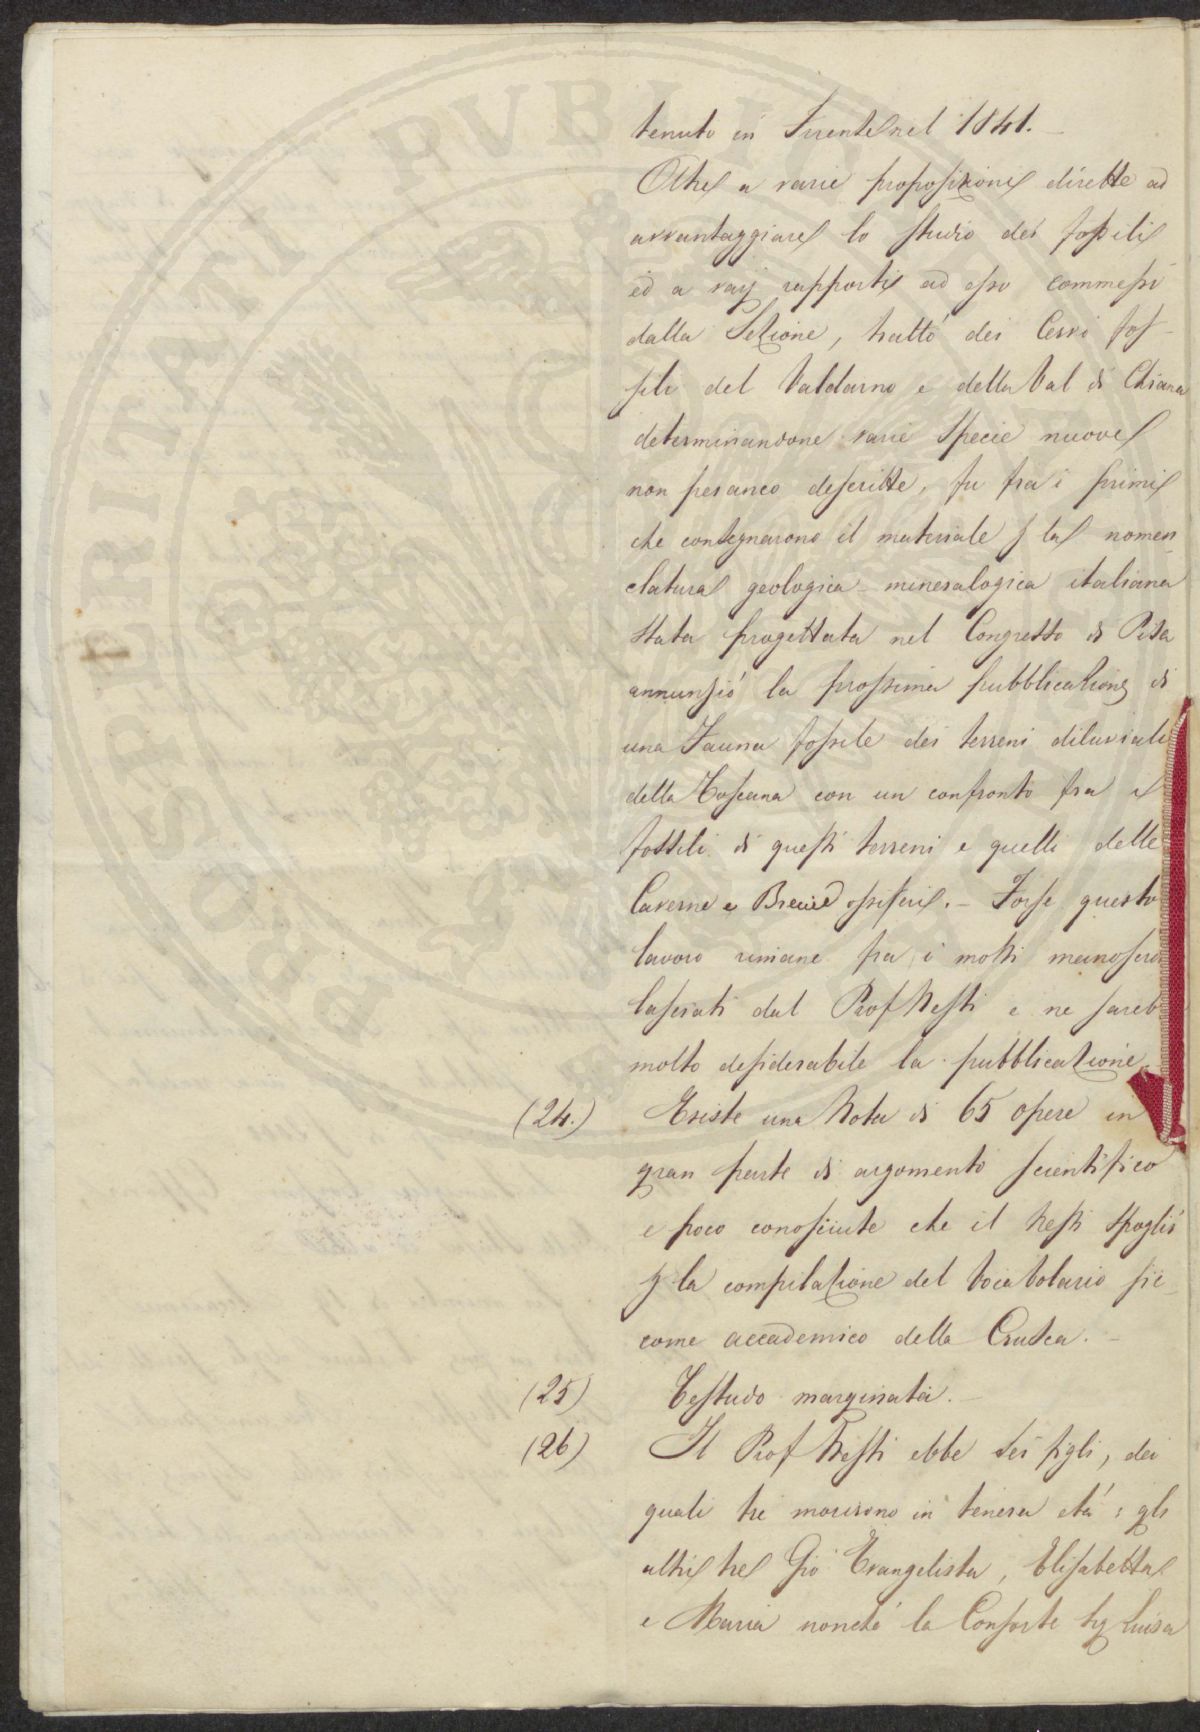 tenuto in Firenze nel 1841. —
Oltre a varie proposizioni dirette ad
avvantaggiare lo studio dei fossili
ed a varj rapporti ad esso commessi
dalla Sezione, trattò dei Cervi fos-
sili del Valdarno e della Val di Chiana
determinandone varie specie nuove
non peranco descritte, fu fra i primi
che consegnarono il materiale p la nomen
clatura geologica-mineralogica italiana
stata progettata nel Congresso di Pisa
annunziò la prossima pubblicazione di
una Fauna fossile dei terreni diluviali
della Toscana con un confronto fra i
fossili di questi terreni e quelli delle
Caverne e Brecie ossifere. — Forse questo
lavoro rimane fra i molti manoscri
lasciati dal Prof Nesti e ne sareb
molto desiderabile la pubblicazione.
(24.) Esiste una Nota di 65 opere in
gran parte di argomento scientifico
e poco conosciute che il Nesti spogliò
p la compilazione del Vocabolario sic
come accademico della Crusca. —
(25) Testudo marginata. —
(26) Il Prof Nesti ebbe sei figli, dei
quali tre morirono in tenera età; gli
altri tre Gio Evangelista, Elisabetta
e Maria nonchè la Consorte Luisa